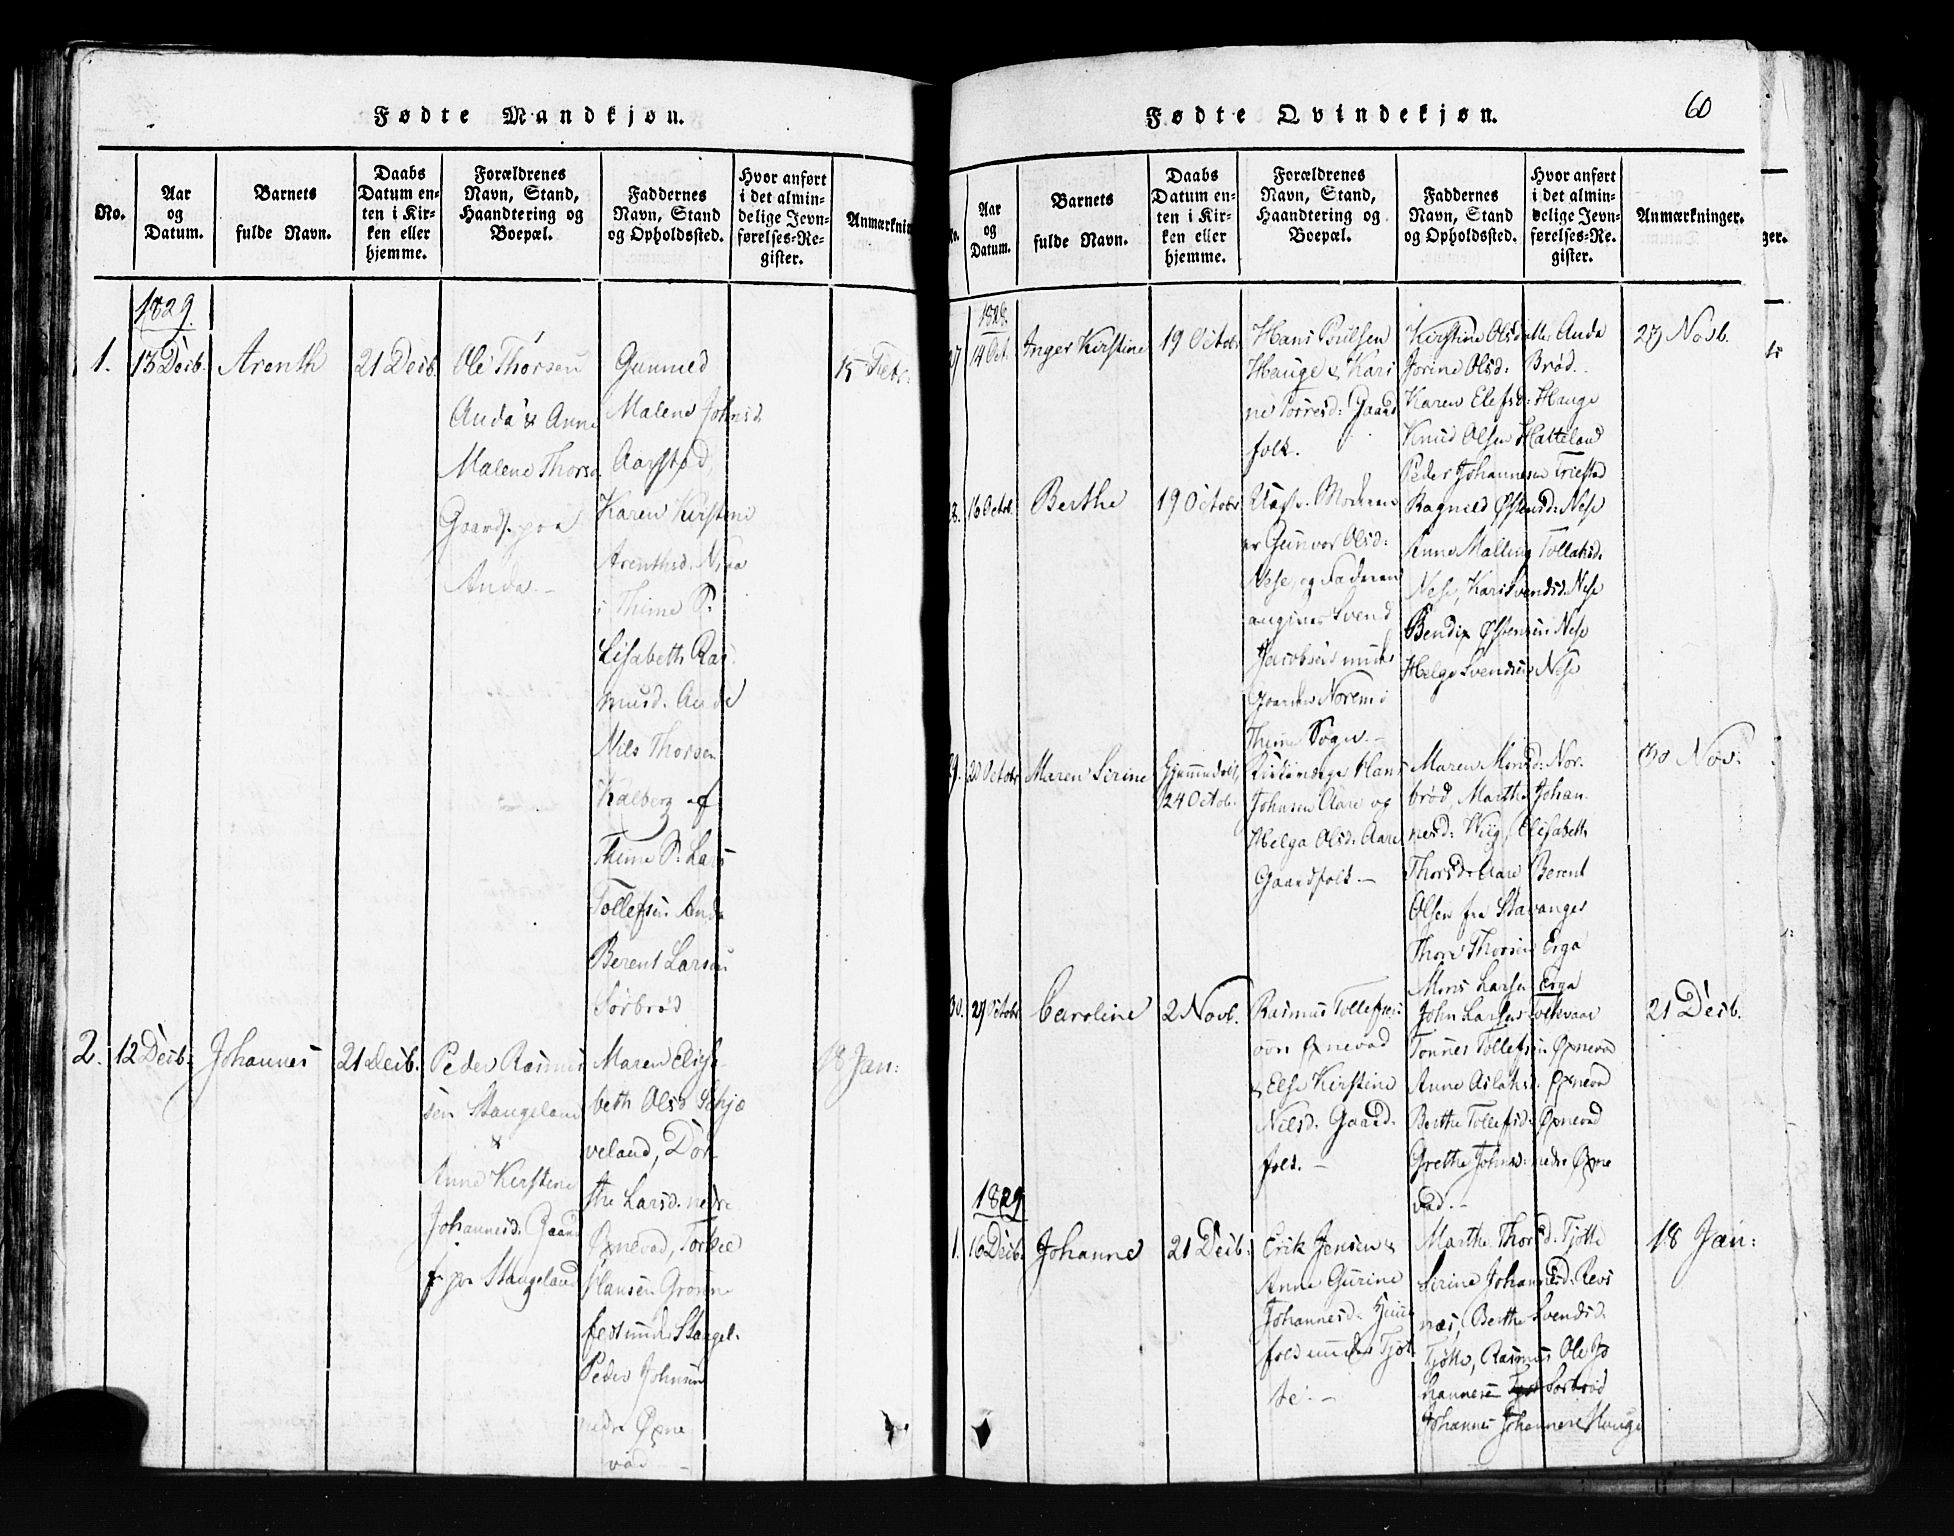 Fødte Mandkjøn.
No.
Aar
og
Datum.
Barnets
fulde Navn.
Daabs
Datum en-
ten i Kir-
ken eller
hjemme.
Forældrenes
Navn, Stand,
Haandtering og
Boepæl.
Faddernes
Navn, Stand
og Opholdssted.
Hvor anført
i det almin-
delige Jevn-
førelses-Re-
gister.
Anmærknin
1829.
1.
13 Decb.
Arenth
21 Decb.
Ole Thorsen
Anda & Anne
Malene Thorsd
Gaardf. paa
Anda.-
Gunnild
Malene Johnsd.
Aarstad,
Karen Kirstine
Arenthsd.
i Thime S.
Lisabeth Ras-
musd. Anda
Nils Thorsen
Kalberg af
Thime S. Lars
Tollefsen Anda
Berent Larsen
Sørbrød
15 Febr:
2.
12 Decb:
Johannes
21 Decb.
Peder Rasmus
sen Stangeland
&
Anne Kirstine
Johannesd. Gaard
f. paa Stangeland
Maren Elisa
beth Olsd Schjæ
veland, Dor
the Larsd. nedre
Øxnevad,
Hansen
under Stangel.
Peder Johnsen
nedre Øxne
vad -
18 Jan:
Fødte Qvindekjøn.
60
No.
Aar
og
Datum.
Barnets
fulde Navn.
Daabs
Datum en-
ten i Kir-
ken eller
hjemme.
Forældrenes
Navn, Stand,
Haandtering og
Boepæl.
Faddernes
Navn, Stand
og Opholdssted.
Hvor anført
i det almin-
delige Jevn-
førelses-Re-
gister.
Anmærkninger.
ger.
1828.
14 Oct.
Inger Kirstine
19 Octobr
Hans Poulsen
Hauge & Kari
ne Torresd: Gaard
folk.
Kirstine Olsdatter Anda
Jorine Olsd: Brød.
Karen Elefsd: Hauge
Knud Olsen Hatteland
Peder Johannesen Friestad
23 Novb.
16 Octob.
Berthe
19 Octobr
Uægte. Moderen
er Gunvor Olsd:
Nese, og Faderen
angives Svend
Jacobsen under
Gaarden Norem i
Thime Sogn.-
Ragnild Østensd: Nese
Anne Malling Tollaksd.
Nese, Kari Svendsd. Nese
Bendix Østensen Nese
Helge Svendsen Nese
29.
20 Octobr
Maren Serine
Hjemmedøbt,
24 Octob.
Hans
Johnsen Aare og
Helga Olsd: Aare
Gaardfolk.-
Maren Monsd: Nor-
brød, Marthe Johan-
nesd: Wiig, Elisabeth
Thorsd: Aare Berent
Olsen fra Stavanger
Thore Thorsen Erga
Mons Larsen Erga
30 Nov:
30.
27 Octobr
Caroline
2 Novb.
Rasmus Tollefsen
øvre Øxnevad
& Else Kirstine
Nilsd. Gaard-
folk.-
John Larsen
Tønnes Tollefsen Øxnevad
Anne Aslaksd. Øxnevad
Berthe Tollefsd: Øxnevad
Grethe Johnsd: nedre Øxne
vad.-
21 Decb.
1829
1.
16 Decb.
Johanne
21 Decb:
Erik Jonsen &
Anne Gurine
Johannesd:
folk under Tjøt
te.-
Marthe Thorsd: Tjøtte
Serine Johannesd: Revs
næs, Berthe Svendsd.
Tjøtte, Rasmus Ole Jo
hannesen Sørbrød
Johannes Johannesen Hauge
18 Jan: